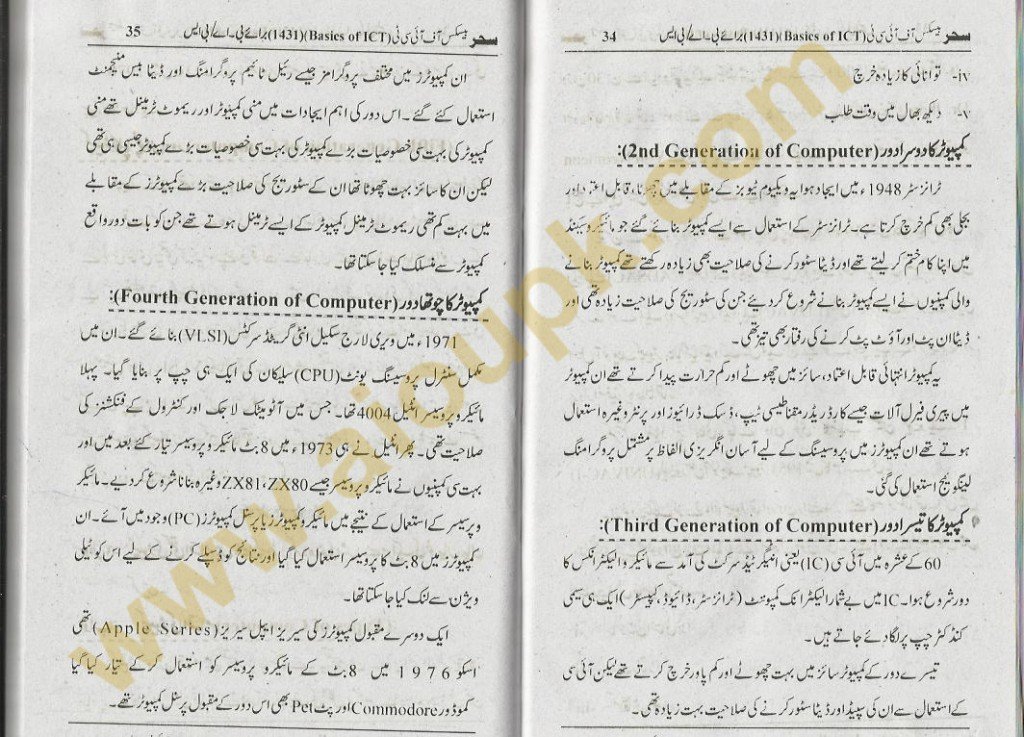 سحر بیسکس آف آئی سی ٹی (Basics of ICT) (1431) برائے بی۔اے/بی ایس 34
iv- توانائی کا زیادہ خرچ
v- دیکھ بھال میں وقت طلب
کمپیوٹر کا دوسرا دور (2nd Generation of Computer):
ٹرانزسٹر 1948ء میں ایجاد ہوا یہ ویکیوم ٹیوبز کے مقابلے میں چھوٹا، قابل اعتماد اور
بجلی بھی کم خرچ کرتا ہے۔ ٹرانزسٹر کے استعمال سے ایسے کمپیوٹر بنائے گئے جو مائیکرو سیکنڈ
میں اپنا کام ختم کر لیتے تھے اور ڈیٹا سٹور کرنے کی صلاحیت بھی زیادہ رکھتے تھے کمپیوٹر بنانے
والی کمپنیوں نے ایسے کمپیوٹر بنانے شروع کر دیئے جن کی سٹوریج کی صلاحیت زیادہ تھی اور
ڈیٹا ان پٹ اور آؤٹ پٹ کرنے کی رفتار بھی تیز تھی۔
یہ کمپیوٹر انتہائی قابل اعتماد، سائز میں چھوٹے اور کم حرارت پیدا کرتے تھے ان کمپیوٹر
میں پیری فیرل آلات جیسے کارڈ ریڈر مقناطیسی ٹیپ، ڈسک ڈرائیوز اور پرنٹر وغیرہ استعمال
ہوتے تھے ان کمپیوٹرز میں پروسیسنگ کے لیے آسان انگریزی الفاظ پر مشتمل پروگرامنگ
لینگوئیج استعمال کی گئی۔
کمپیوٹر کا تیسرا دور (Third Generation of Computer):
60 کے عشرہ میں آئی سی (IC) یعنی انٹیگرٹیڈ سرکٹ کی آمد سے مائیکرو الیکٹرانکس کا
دور شروع ہوا۔ IC میں بے شمار الیکٹرانک کمپوننٹ (ٹرانزسٹر، ڈائیوڈ، کپیسٹر) ایک ہی سیمی
کنڈکٹر چپ پر لگا دئے جاتے ہیں۔
تیسرے دور کے کمپیوٹر سائز میں بہت چھوٹے اور کم پاور خرچ کرتے تھے لیکن آئی سی
کے استعمال سے ان کی سپیڈ اور ڈیٹا سٹور کرنے کی صلاحیت بہت زیادہ تھی۔
سحر بیسکس آف آئی سی ٹی (Basics of ICT) (1431) برائے بی۔اے/بی ایس 35
ان کمپیوٹرز میں مختلف پروگرامز جیسے رئیل ٹائیم پروگرامنگ اور ڈیٹا بیس منیجمنٹ
استعمال کئے گئے۔ اس دور کی اہم ایجادات میں منی کمپیوٹر اور ریموٹ ٹرمینل تھے منی
کمپیوٹر کی بہت سی خصوصیات بڑے کمپیوٹر کی بہت سی خصوصیات بڑے کمپیوٹر جیسی ہی تھی
لیکن ان کا سائز بہت چھوٹا تھا ان کے سٹوریج کی صلاحیت بڑے کمپیوٹرز کے مقابلے
میں بہت کم تھی ریموٹ ٹرمینل کمپیوٹر کے ایسے ٹرمینل ہوتے تھے جن کو بات دور واقع
کمپیوٹر سے منسلک کیا جا سکتا تھا۔
کمپیوٹر کا چوتھا دور (Fourth Generation of Computer):
1971ء میں ویری لارج سکیل انٹی گریٹڈ سرکٹس (VLSI) بنائے گئے۔ ان میں
مکمل سنٹرل پروسیسنگ یونٹ (CPU) سلیکان کی ایک ہی چپ پر بنایا گیا۔ پہلا
مائیکرو پروسیسر انٹیل 4004 تھا۔ جس میں آٹومیٹک لاجک اور کنٹرول کے فنکشنز کی
صلاحیت تھی۔ پھر انٹیل نے ہی 1973ء میں 8 بٹ مائیکرو پروسیسر تیار کئے بعد میں اور
بہت سی کمپنیوں نے مائیکرو پروسیسر جیسے ZX81، ZX80 وغیرہ بنانا شروع کر دیے۔ مائیکر
وپرسیسر کے استعمال کے نتیجے میں مائیکرو کمپیوٹرز یا پرسنل کمپیوٹرز (PC) وجود میں آئے۔ ان
کمپیوٹرز میں 8 بٹ کا پروسیسر استعمال کیا گیا اور نتائج کو ڈسپلے کرنے کے لیے اس کو ٹیلی
ویژن سے لنک کیا جا سکتا تھا۔
ایک دوسرے مقبول کمپیوٹرز کی سیریز ایپل سیریز (Apple Series) تھی
اسکو 1976 میں 8 بٹ کے مائیکرو پروسیسر کو استعمال کر کے تیار کیا گیا
کموڈور Commodore اور پٹ Pet بھی اس دور کے مقبول پرسنل کمپیوٹر تھے۔
www.aioupk.com